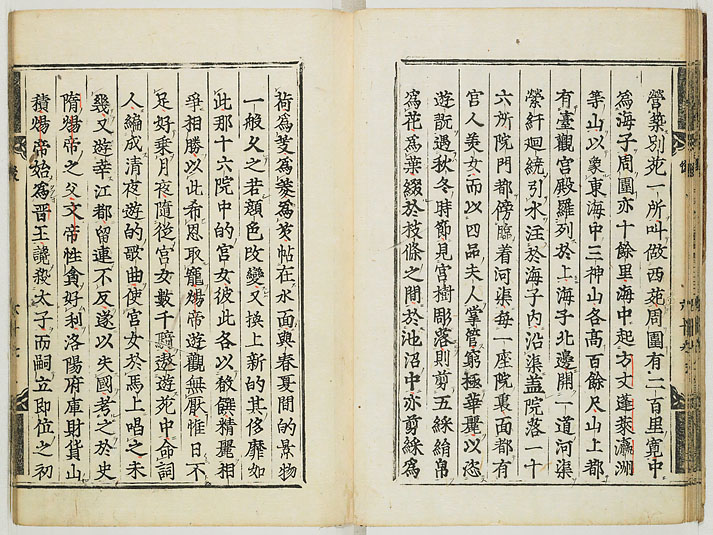 營築別苑一所叫做西苑周圍有二百里寬中
為海子周圍亦十餘里海中起方丈蓬萊瀛洲
築山以象東海中三神山各高百餘尺山上都
有臺觀宮殿羅列於上海子北邊開一道河渠
縈紆廻繞引水注於海子內沿渠盖院落一十
六所院門都傍臨着河渠每一座院裏面都有
宮人美女而以四品夫人掌管窮極華麗以恣
遊翫遇秋冬時節見宮樹彫落則剪五綵絹帛
為花為葉綴於枝條之間於池沼中亦剪綵為
荷為芰為菱為芡帖在水面與春夏間的景物
一般久之若顏色改變又換上新的其侈靡如
此那十六院中的宮女彼此各以殽饌精麗相
爭相勝以此希恩取寵煬帝遊觀無厭惟日不
足好乘月夜隨從宮女數千騎遨遊苑中命詞
人編成清夜遊的歌曲使宮女於馬上唱之未
幾又遊幸江都留連不反遂以失國考之於史
隋煬帝之父文帝性貪好利洛陽府庫財貨山
積煬帝始為晋王讒殺太子而嗣立即位之初